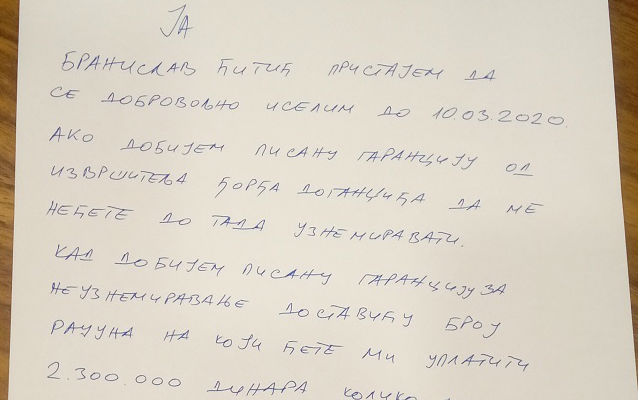 ЈА
БРАНИСЛАВ ЋИТИЋ ПРИСТАЈЕМ ДА
СЕ ДОБРОВОЉНО ИСЕЛИМ ДО 10.03.2020.
АКО ДОБИЈЕМ ПИСАНУ ГАРАНЦИЈУ ОД
ИЗВРШИТЕЉА ЂОРЂА ДОГАНЏИЋА ДА МЕ
НЕЋЕТЕ ДО ТАДА УЗНЕМИРАВАТИ.
КАД ДОБИЈЕМ ПИСАНУ ГАРАНЦИЈУ ЗА
НЕУЗНЕМИРАВАЊЕ ДОСТАВИЋУ БРОЈ
РАЧУНА НА КОЈИ ЋЕТЕ МИ УПЛАТИТИ
2.300.000 ДИНАРА КОЛИКО